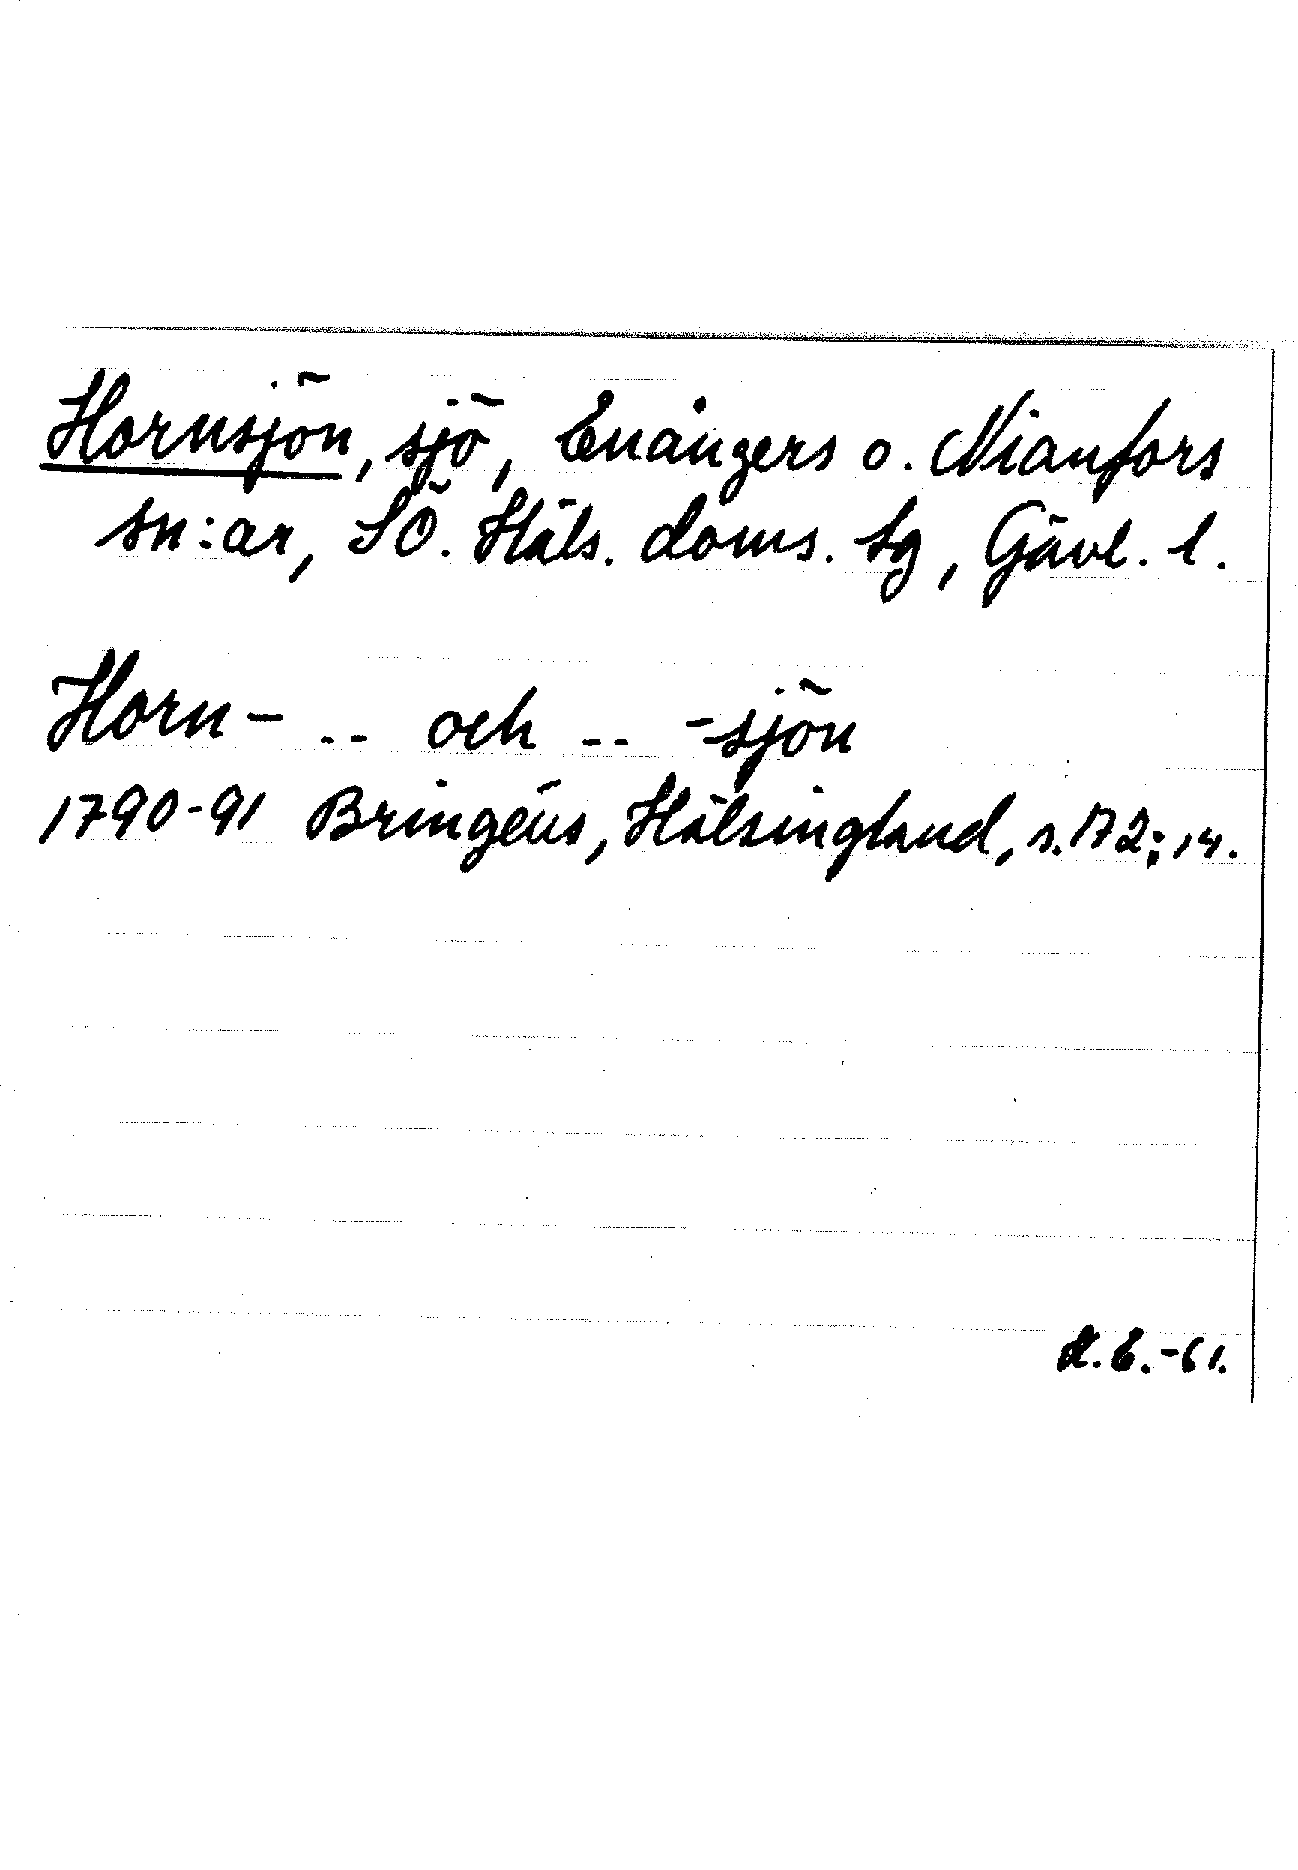 Hornsjön, sjö, Enångers o. Nianfors
sn:ar, SÖ. Häls. doms. tg, Gävl. l.
Horn- .. och .. -sjön
1790-91 Bringéus, Hälsingland, s. 172; 14.
E.-61.